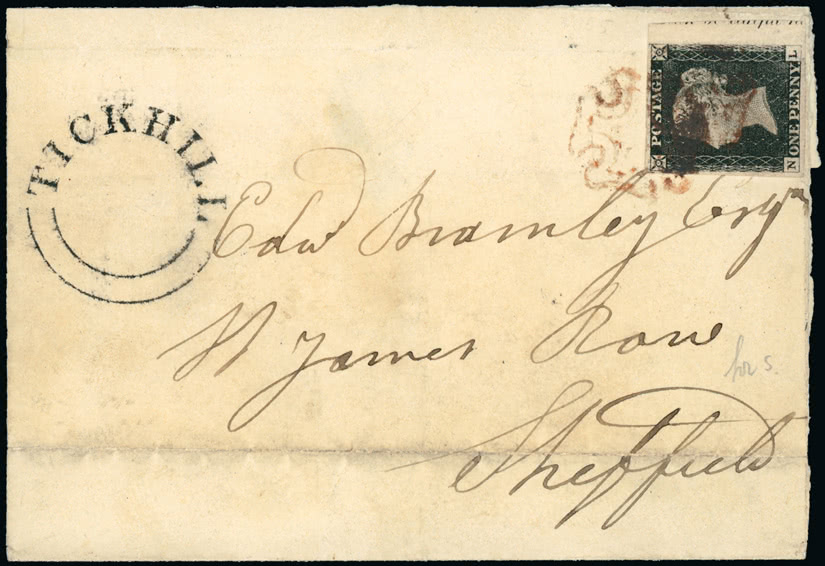 TICKHILL
POSTAGE
ONE PENNY
N L
Edwd Bramley Esqr
St James Row
Sheffield